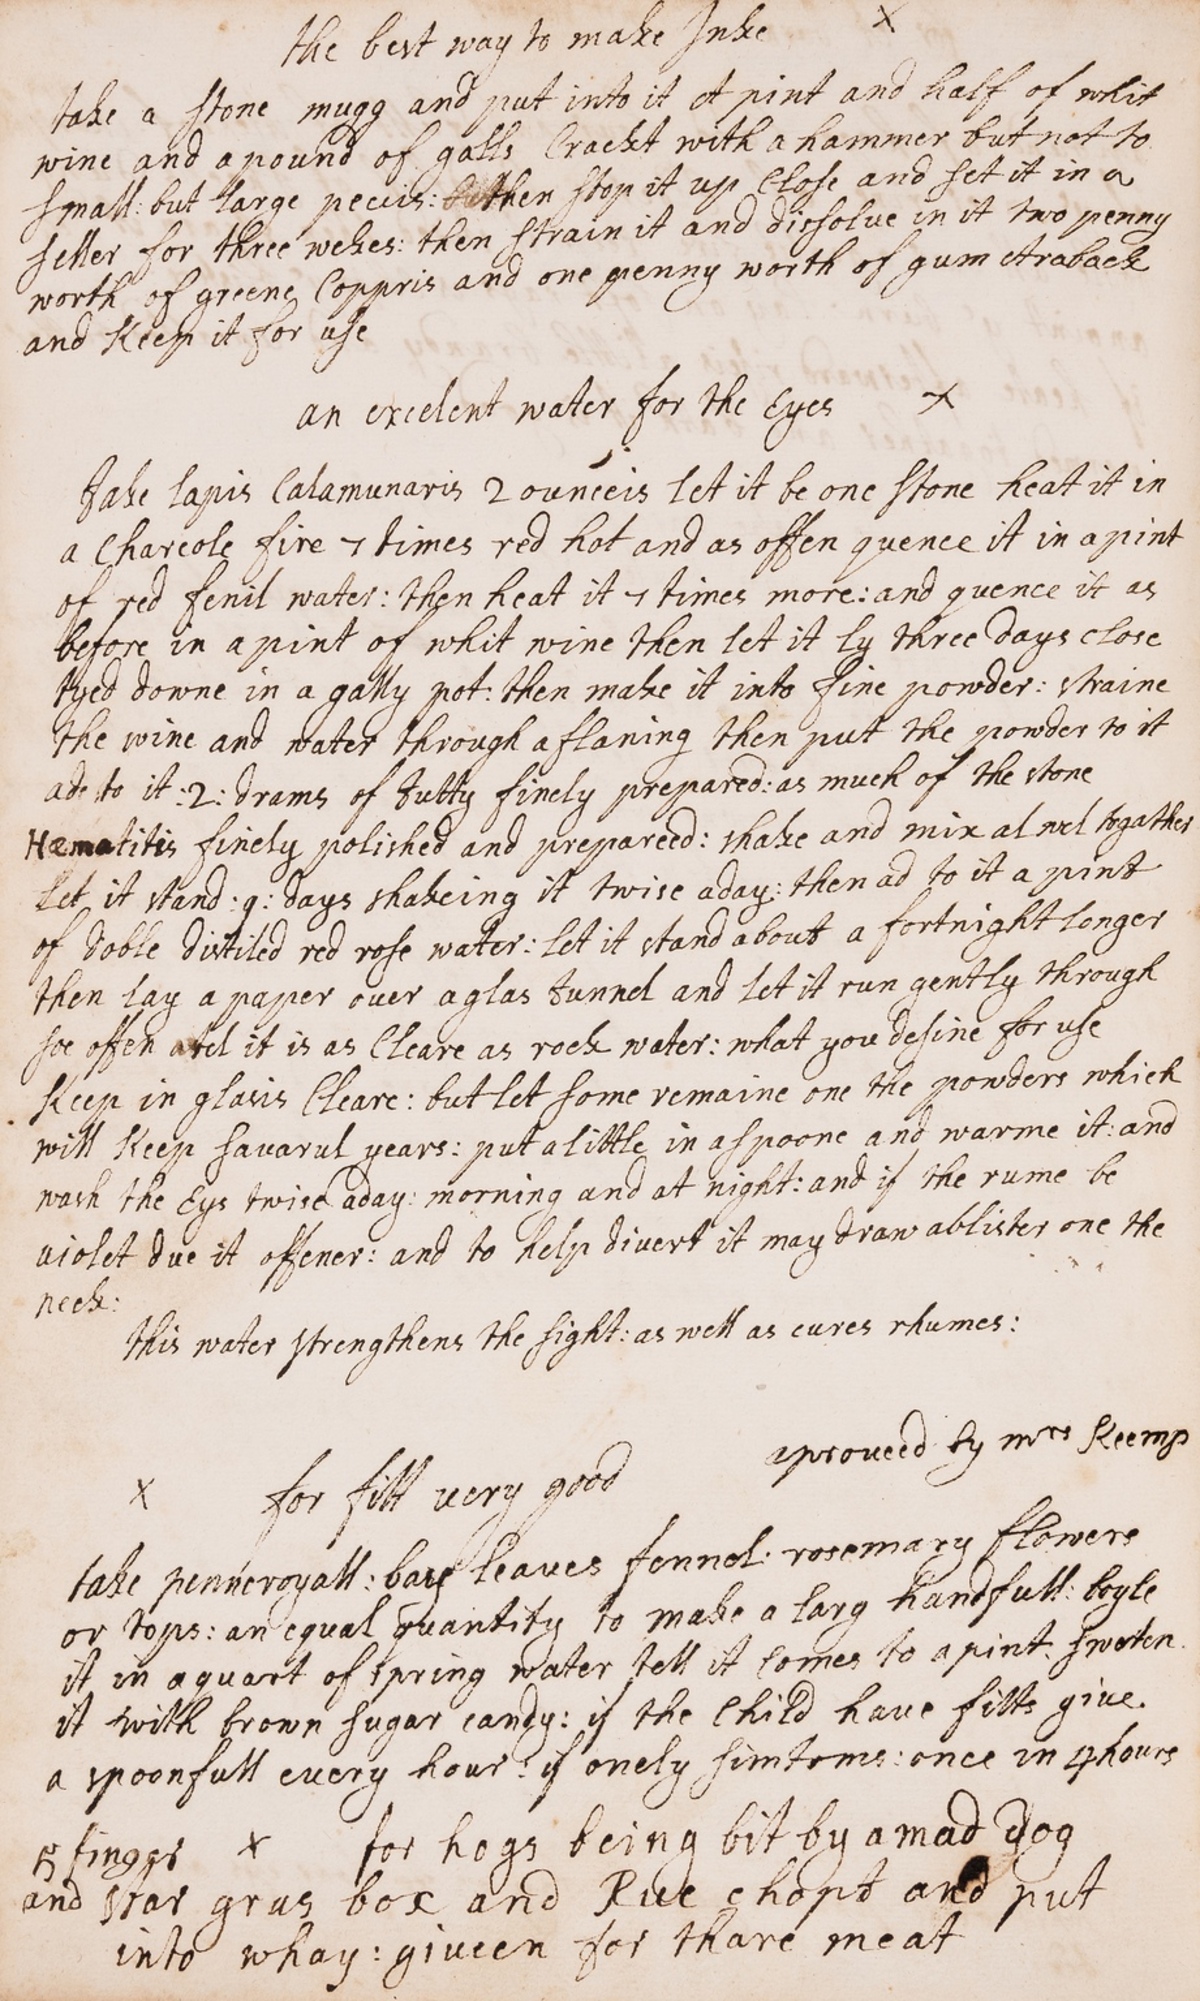 the best way to make Inke x
take a stone mugg and put into it A pint and half of whit
wine and a pound of galls Crackt with a hammer but not to
small: but large pecies: then stop it up Close and set it in a
seller for three wekes: then strain it and dissolve in it two penny
worth of greene Coppris and one penny worth of gum Araback
and Keep it for use
an excelent water for the Eyes x
Take lapis Calamunaris 2 ounceis let it be one stone heat it in
a Charcole fire 7 times red hot and as offen quence it in a pint
of red fenil water: then heat it 7 times more: and quence it as
before in a pint of whit wine then let it ly three days close
tyed downe in a gally pot: then make it into fine powder: straine
the wine and water through a flaning then put the powder to it
ade to it :2: drams of Tutty finely prepared: as much of the stone
Hæmatitis finely polished and prepareed: shake and mix al wel togather
Let it stand :9: days shakeing it twise a day: then ad to it a pint
of doble distiled red rose water: let it stand about a fortnight longer
then lay a paper over a glas Tunnel and let it run gently through
soe offen tel it is as Cleare as rock water: what you desine for use
Keep in glasis Cleare: but let some remaine one the powders which
will Keep savarul years: put a little in a spoone and warme it: and
wash the Eys twise a day: morning and at night: and if the rume be
violet due it offener: and to help divert it may draw a blister one the
neck:
this water strengthens the sight: as well as cures rhumes:
aproveed by mrs Keemp
x for fitt very good
take penneroyall: baye leaves fennel: rosemary flowers
or tops: an equal quantity to make a larg handfull: boyle
it in a quart of spring water tell it Comes to a pint: sweten
it with brown sugar candy: if the Child have fitts give
a spoonfull every hour: if onely simtoms: once in 4 hours
5 finger x for hogs being bit by a mad Dog
and star gras box and Rue chopt and put
into whay: giveen for thare meat